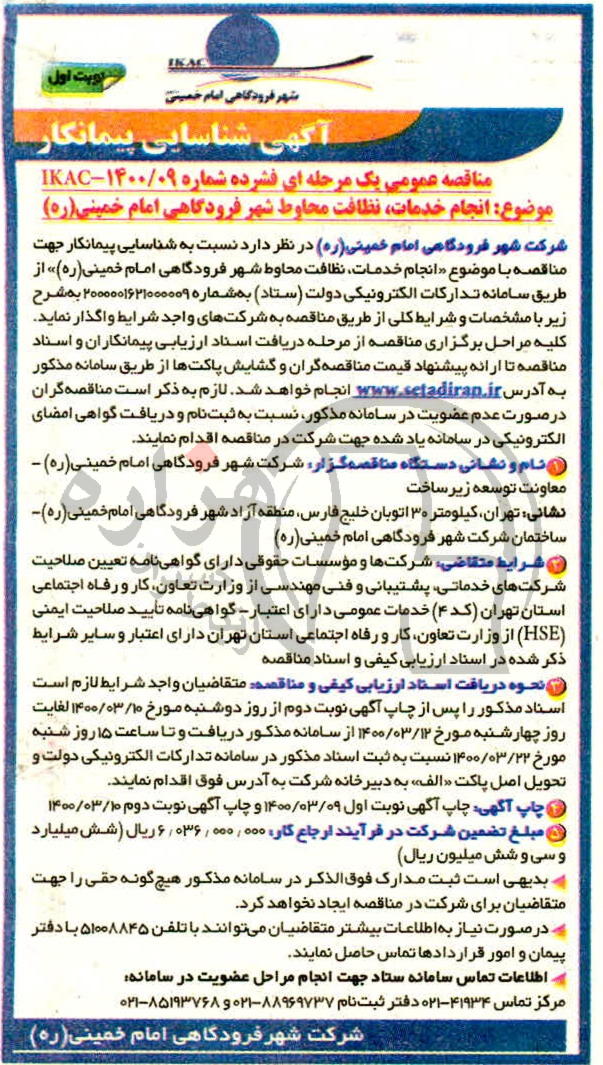 IKAC
شهر فرودگاهی امام خمینی
نوبت اول
آگهی شناسایی پیمانکار
مناقصه عمومی یک مرحله ای فشرده شماره IKAC-۱۴۰۰/۰۹
موضوع: انجام خدمات، نظافت محاوط شهر فرودگاهی امام خمینی(ره)
شرکت شهر فرودگاهی امام خمینی(ره) در نظر دارد نسبت به شناسایی پیمانکار جهت
مناقصه با موضوع «انجام خدمات، نظافت محاوط شهر فرودگاهی امام خمینی(ره)» از
طریق سامانه تدارکات الکترونیکی دولت (ستاد) به‌شماره ۲۰۰۰۰۰۱۶۲۱۰۰۰۰۰۹ به‌شرح
زیر با مشخصات و شرایط کلی از طریق مناقصه به شرکت‌های واجد شرایط واگذار نماید.
کلیه مراحل برگزاری مناقصه از مرحله دریافت اسناد ارزیابی پیمانکاران و اسناد
مناقصه تا ارائه پیشنهاد قیمت مناقصه‌گران و گشایش پاکت‌ها از طریق سامانه مذکور
به آدرس www.setadiran.ir انجام خواهد شد. لازم به ذکر است مناقصه‌گران
درصورت عدم عضویت در سامانه مذکور، نسبت به ثبت‌نام و دریافت گواهی امضای
الکترونیکی در سامانه یاد شده جهت شرکت در مناقصه اقدام نمایند.
۱ نام و نشانی دستگاه مناقصه‌گزار: شرکت شهر فرودگاهی امام خمینی(ره) –
معاونت توسعه زیرساخت
نشانی: تهران، کیلومتر ۳۰ اتوبان خلیج فارس، منطقه آزاد شهر فرودگاهی امام‌خمینی(ره)–
ساختمان شرکت شهر فرودگاهی امام خمینی(ره)
۲ شرایط متقاضی: شرکت‌ها و مؤسسات حقوقی دارای گواهی‌نامه تعیین صلاحیت
شرکت‌های خدماتی، پشتیبانی و فنی مهندسی از وزارت تعاون، کار و رفاه اجتماعی
استان تهران (کد ۴) خدمات عمومی دارای اعتبار – گواهی‌نامه تأیید صلاحیت ایمنی
(HSE) از وزارت تعاون، کار و رفاه اجتماعی استان تهران دارای اعتبار و سایر شرایط
ذکر شده در اسناد ارزیابی کیفی و اسناد مناقصه
۳ نحوه دریافت اسناد ارزیابی کیفی و مناقصه: متقاضیان واجد شرایط لازم است
اسناد مذکور را پس از چاپ آگهی نوبت دوم از روز دوشنبه مورخ ۱۴۰۰/۰۳/۱۰ لغایت
روز چهارشنبه مورخ ۱۴۰۰/۰۳/۱۲ از سامانه مذکور دریافت و تا ساعت ۱۵ روز شنبه
مورخ ۱۴۰۰/۰۳/۲۲ نسبت به ثبت اسناد مذکور در سامانه تدارکات الکترونیکی دولت و
تحویل اصل پاکت «الف» به دبیرخانه شرکت به آدرس فوق اقدام نمایند.
۴ چاپ آگهی: چاپ آگهی نوبت اول ۱۴۰۰/۰۳/۰۹ و چاپ آگهی نوبت دوم ۱۴۰۰/۰۳/۱۰
۵ مبلغ تضمین شرکت در فرآیند ارجاع کار: ۶٫۰۳۶٫۰۰۰٫۰۰۰ ریال (شش میلیارد
و سی و شش میلیون ریال)
بدیهی است ثبت مدارک فوق‌الذکر در سامانه مذکور هیچ‌گونه حقی را جهت
متقاضیان برای شرکت در مناقصه ایجاد نخواهد کرد.
درصورت نیاز به‌اطلاعات بیشتر متقاضیان می‌توانند با تلفن ۵۱۰۰۸۸۴۵ با دفتر
پیمان و امور قراردادها تماس حاصل نمایند.
اطلاعات تماس سامانه ستاد جهت انجام مراحل عضویت در سامانه:
مرکز تماس ۴۱۹۳۴-۰۲۱ دفتر ثبت‌نام ۸۸۹۶۹۷۳۷-۰۲۱ و ۸۵۱۹۳۷۶۸-۰۲۱
شرکت شهر فرودگاهی امام خمینی (ره)